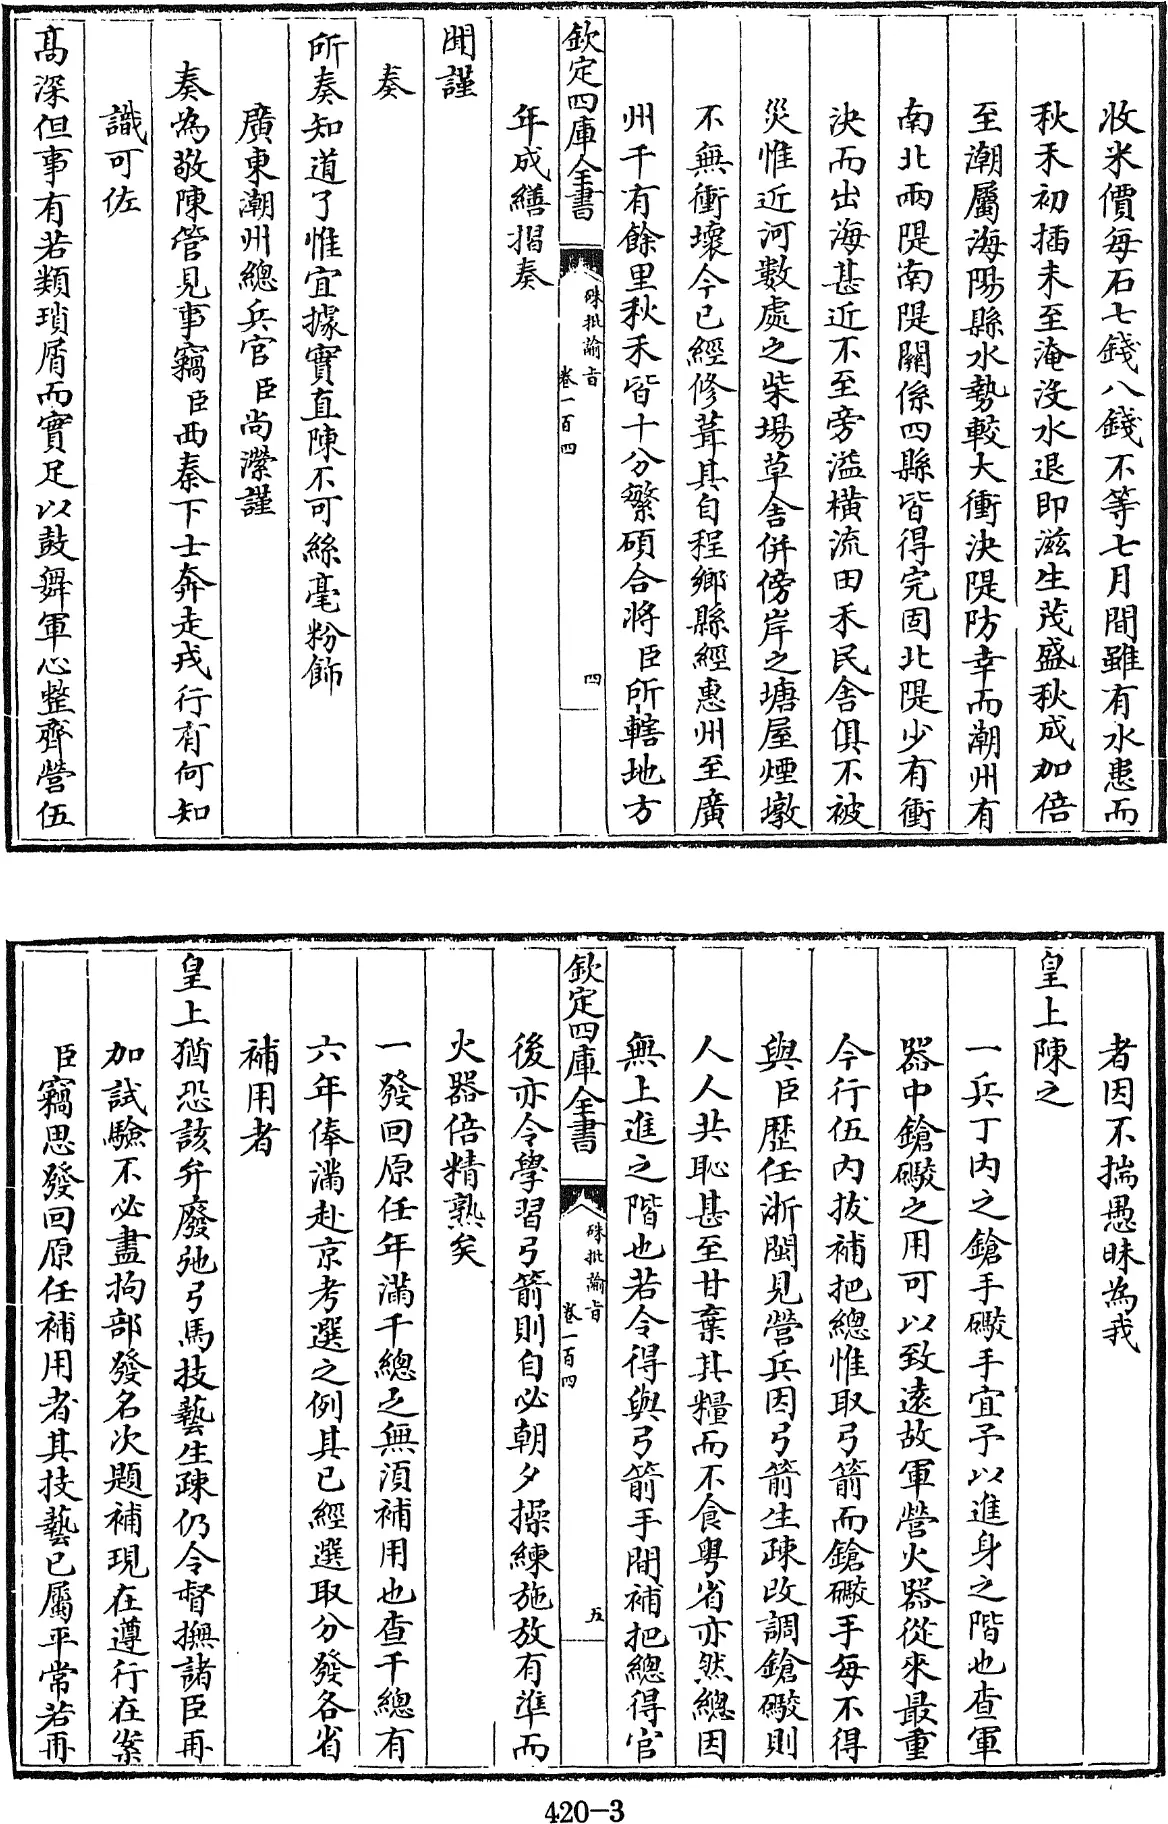 收米價每石七錢八錢不等七月間雖有水患而
秋禾初插未至淹沒水退即滋生茂盛秋成加倍
至潮屬海陽縣水勢較大衝決隄防幸而潮州有
南北兩隄南隄關係四縣皆得完固北隄少有衝
決而出海甚近不至旁溢橫流田禾民舍俱不被
災惟近河數處之柴場草舍併傍岸之塘屋煙墩
不無衝壞今已經修葺其自程鄉縣經惠州至廣
州千有餘里秋禾皆十分繁碩合將臣所轄地方
欽定四庫全書
硃批諭旨
卷一百四
四
年成繕摺奏
聞謹
奏
所奏知道了惟宜據實直陳不可絲毫粉飾
廣東潮州總兵官臣尚濚謹
奏為敬陳管見事竊臣西秦下士奔走戎行有何知
識可佐
高深但事有若類瑣屑而實足以鼓舞軍心整齊營伍
者因不揣愚昧為我
皇上陳之
一兵丁內之鎗手礮手宜予以進身之階也查軍
器中鎗礮之用可以致遠故軍營火器從來最重
今行伍內拔補把總惟取弓箭而鎗礮手每不得
與臣歷任浙閩見營兵因弓箭生疎改調鎗礮則
人人共恥甚至甘棄其糧而不食粵省亦然總因
無上進之階也若令得與弓箭手間補把總得官
欽定四庫全書
硃批諭旨
卷一百四
五
後亦令學習弓箭則自必朝夕操練施放有準而
火器倍精熟矣
一發回原任年滿千總之無湏補用也查千總有
六年俸滿赴京考選之例其已經選取分發各省
補用者
皇上猶恐該弁廢弛弓馬技藝生疎仍令督撫諸臣再
加試驗不必盡拘部發名次題補現在遵行在案
臣竊思發回原任補用者其技藝已屬平常若再
420-3